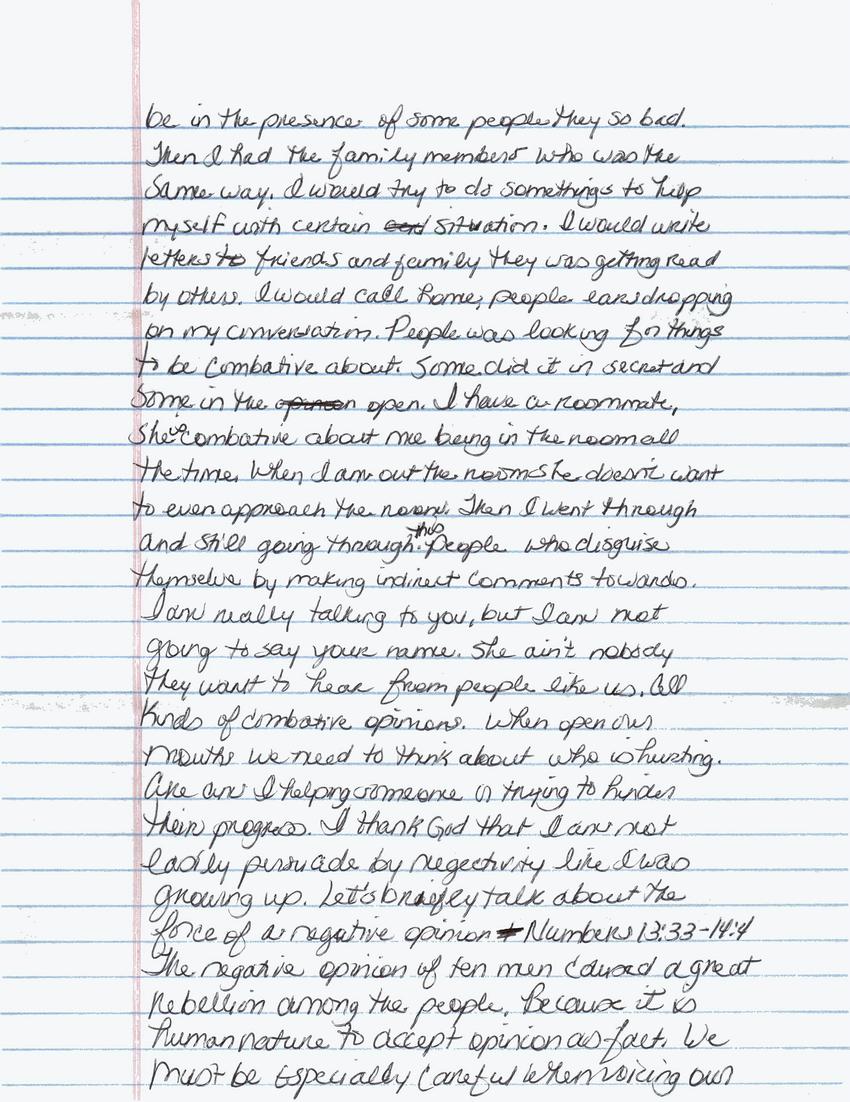 be in the presence of some people they so bad.
Then I had the family members who was the
same way. I would try to do somethings to help
myself with certain situation. I would write
letters to friends and family they was getting read
by others. I would call home, people earsdropping
on my conversation. People was looking for things
to be combative about. Some did it in secret and
some in the open. I have a roommate,
she combative about me being in the room all
the time. When I am out the room she doesn't want
to even approach the room. Then I went through
and still going through this. People who disguise
themselve by making indirect comments towards.
I am really talking to you, but I am not
going to say your name. She ain't nobody
they want to hear from people like us. All
kinds of combative opinions. When open our
mouths we need to think about who is hurting.
Are am I helping someone or trying to hinder
their progress. I thank God that I am not
easily persuade by negectivity like I was
growing up. Let's briefly talk about the
force of a negative opinion Numbers 13:33-14:4
The negative opinion of ten men caused a great
Rebellion among the people. Because it is
human nature to accept opinion as fact. We
must be especially careful when voicing our